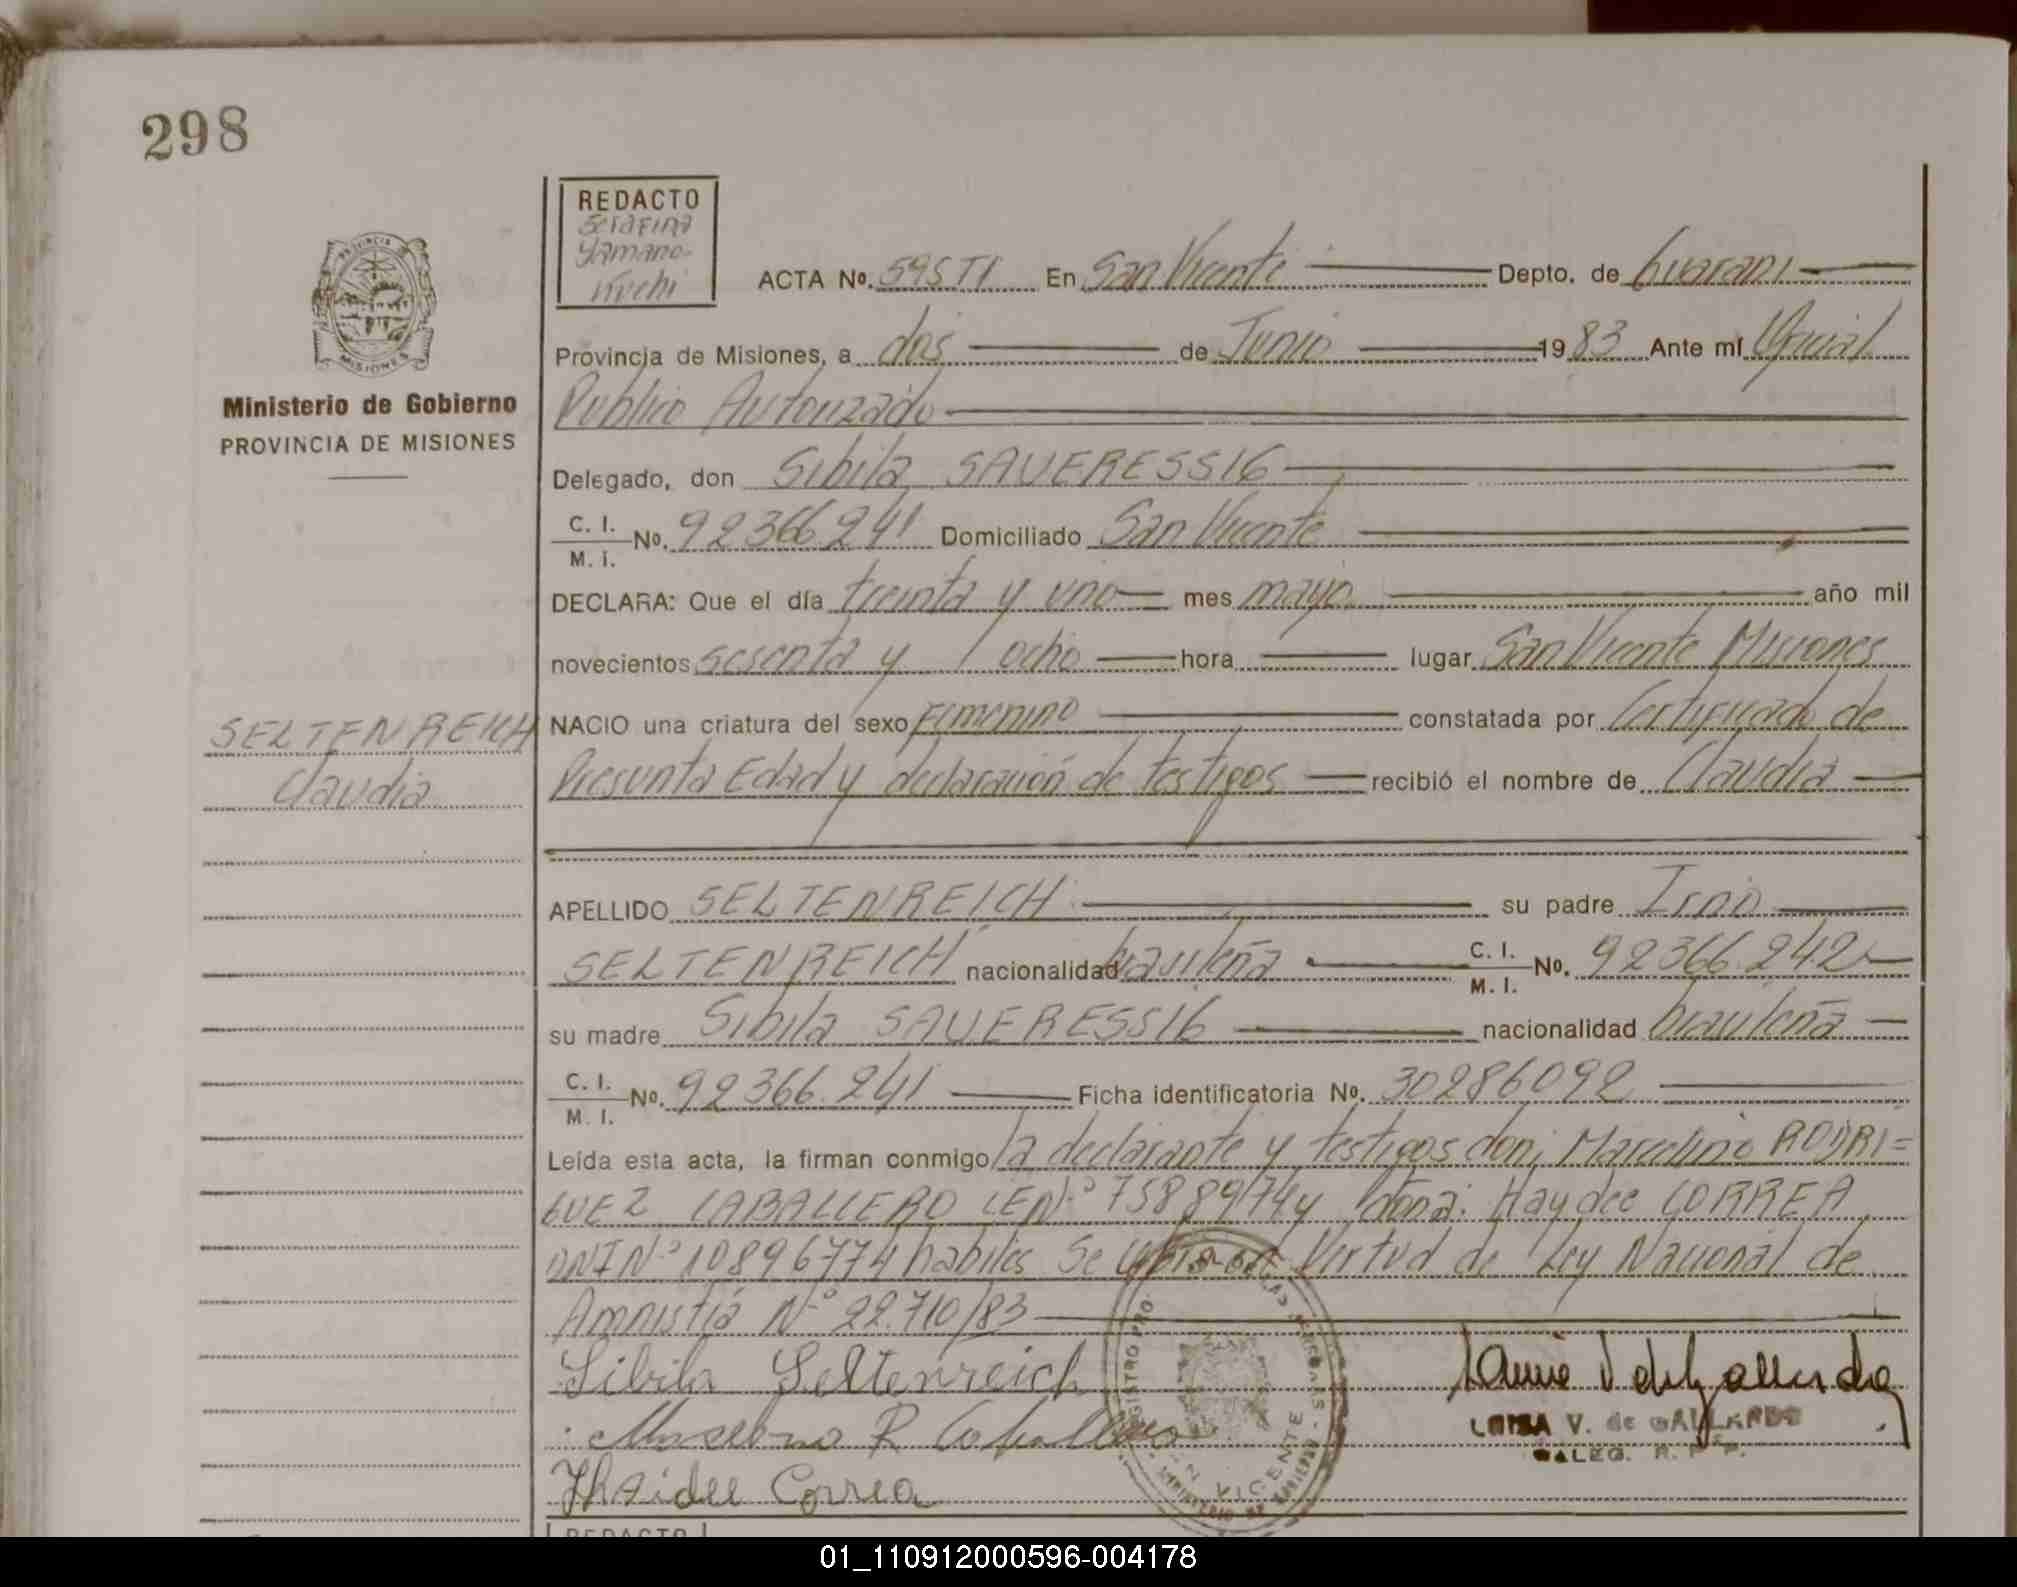 298
REDACTO
Serafina
Yamano-
Kuchi
ACTA No. 595 TI En San Vicente Depto. de Guarani
Provincia de Misiones, a dos de Junio 1983 Ante mí Oficial
Publico Autorizado
Delegado, don Sibila SAUERESSIG
C. I. / M. I. No. 92366241 Domiciliado San Vicente
DECLARA: Que el día treinta y uno mes mayo año mil
novecientos sesenta y ocho hora lugar San Vicente Misiones
NACIO una criatura del sexo Femenino constatada por Certificado de
Presunta Edad y declaración de testigos recibió el nombre de Claudia
APELLIDO SELTENREICH su padre
SELTENREICH nacionalidad brasileña C. I. / M. I. No. 92366.242
su madre Sibila SAUERESSIG nacionalidad brasileña
C. I. / M. I. No. 92366.241 Ficha identificatoria No. 30286092
Leída esta acta, la firman conmigo la declarante y testigos don; Marcelino RODRI=
GUEZ CABALLERO LE Nº 7588974 y doña: Haydee CORREA
DNI Nº 10896774 habiles Se labra en Virtud de Ley Nacional de
Amnistia Nº 22.710/83
Sibila Seltenreich
Marcelino R Caballero
Jhaidee Correa
LUISA V. de GALLARDO
DELEG. R. P.
SAN VICENTE
PROVINCIA
MISIONES
Ministerio de Gobierno
PROVINCIA DE MISIONES
SELTENREICH
Claudia
REDACTO
01_110912000596-004178